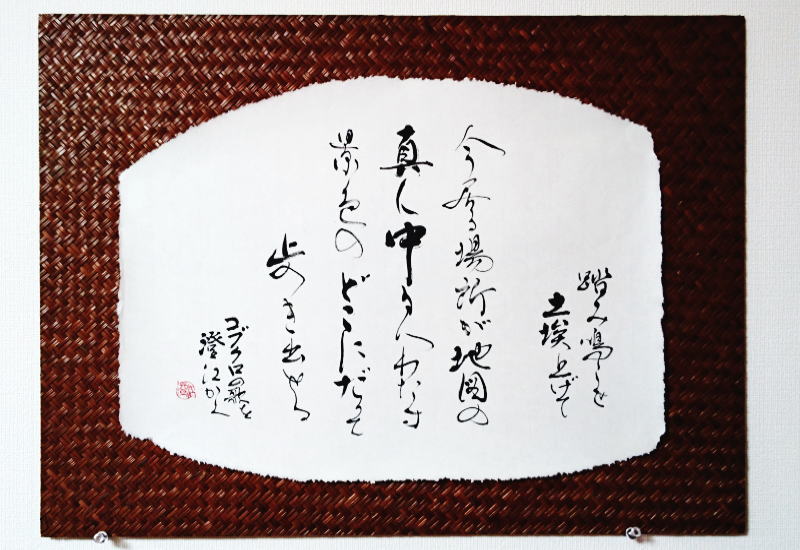 踏み鳴らせ
土埃上げて
今居る場所が地図の
真ん中 見わたす
景色のどこにだって
歩き出せる
コブクロの歌を
澄江かく